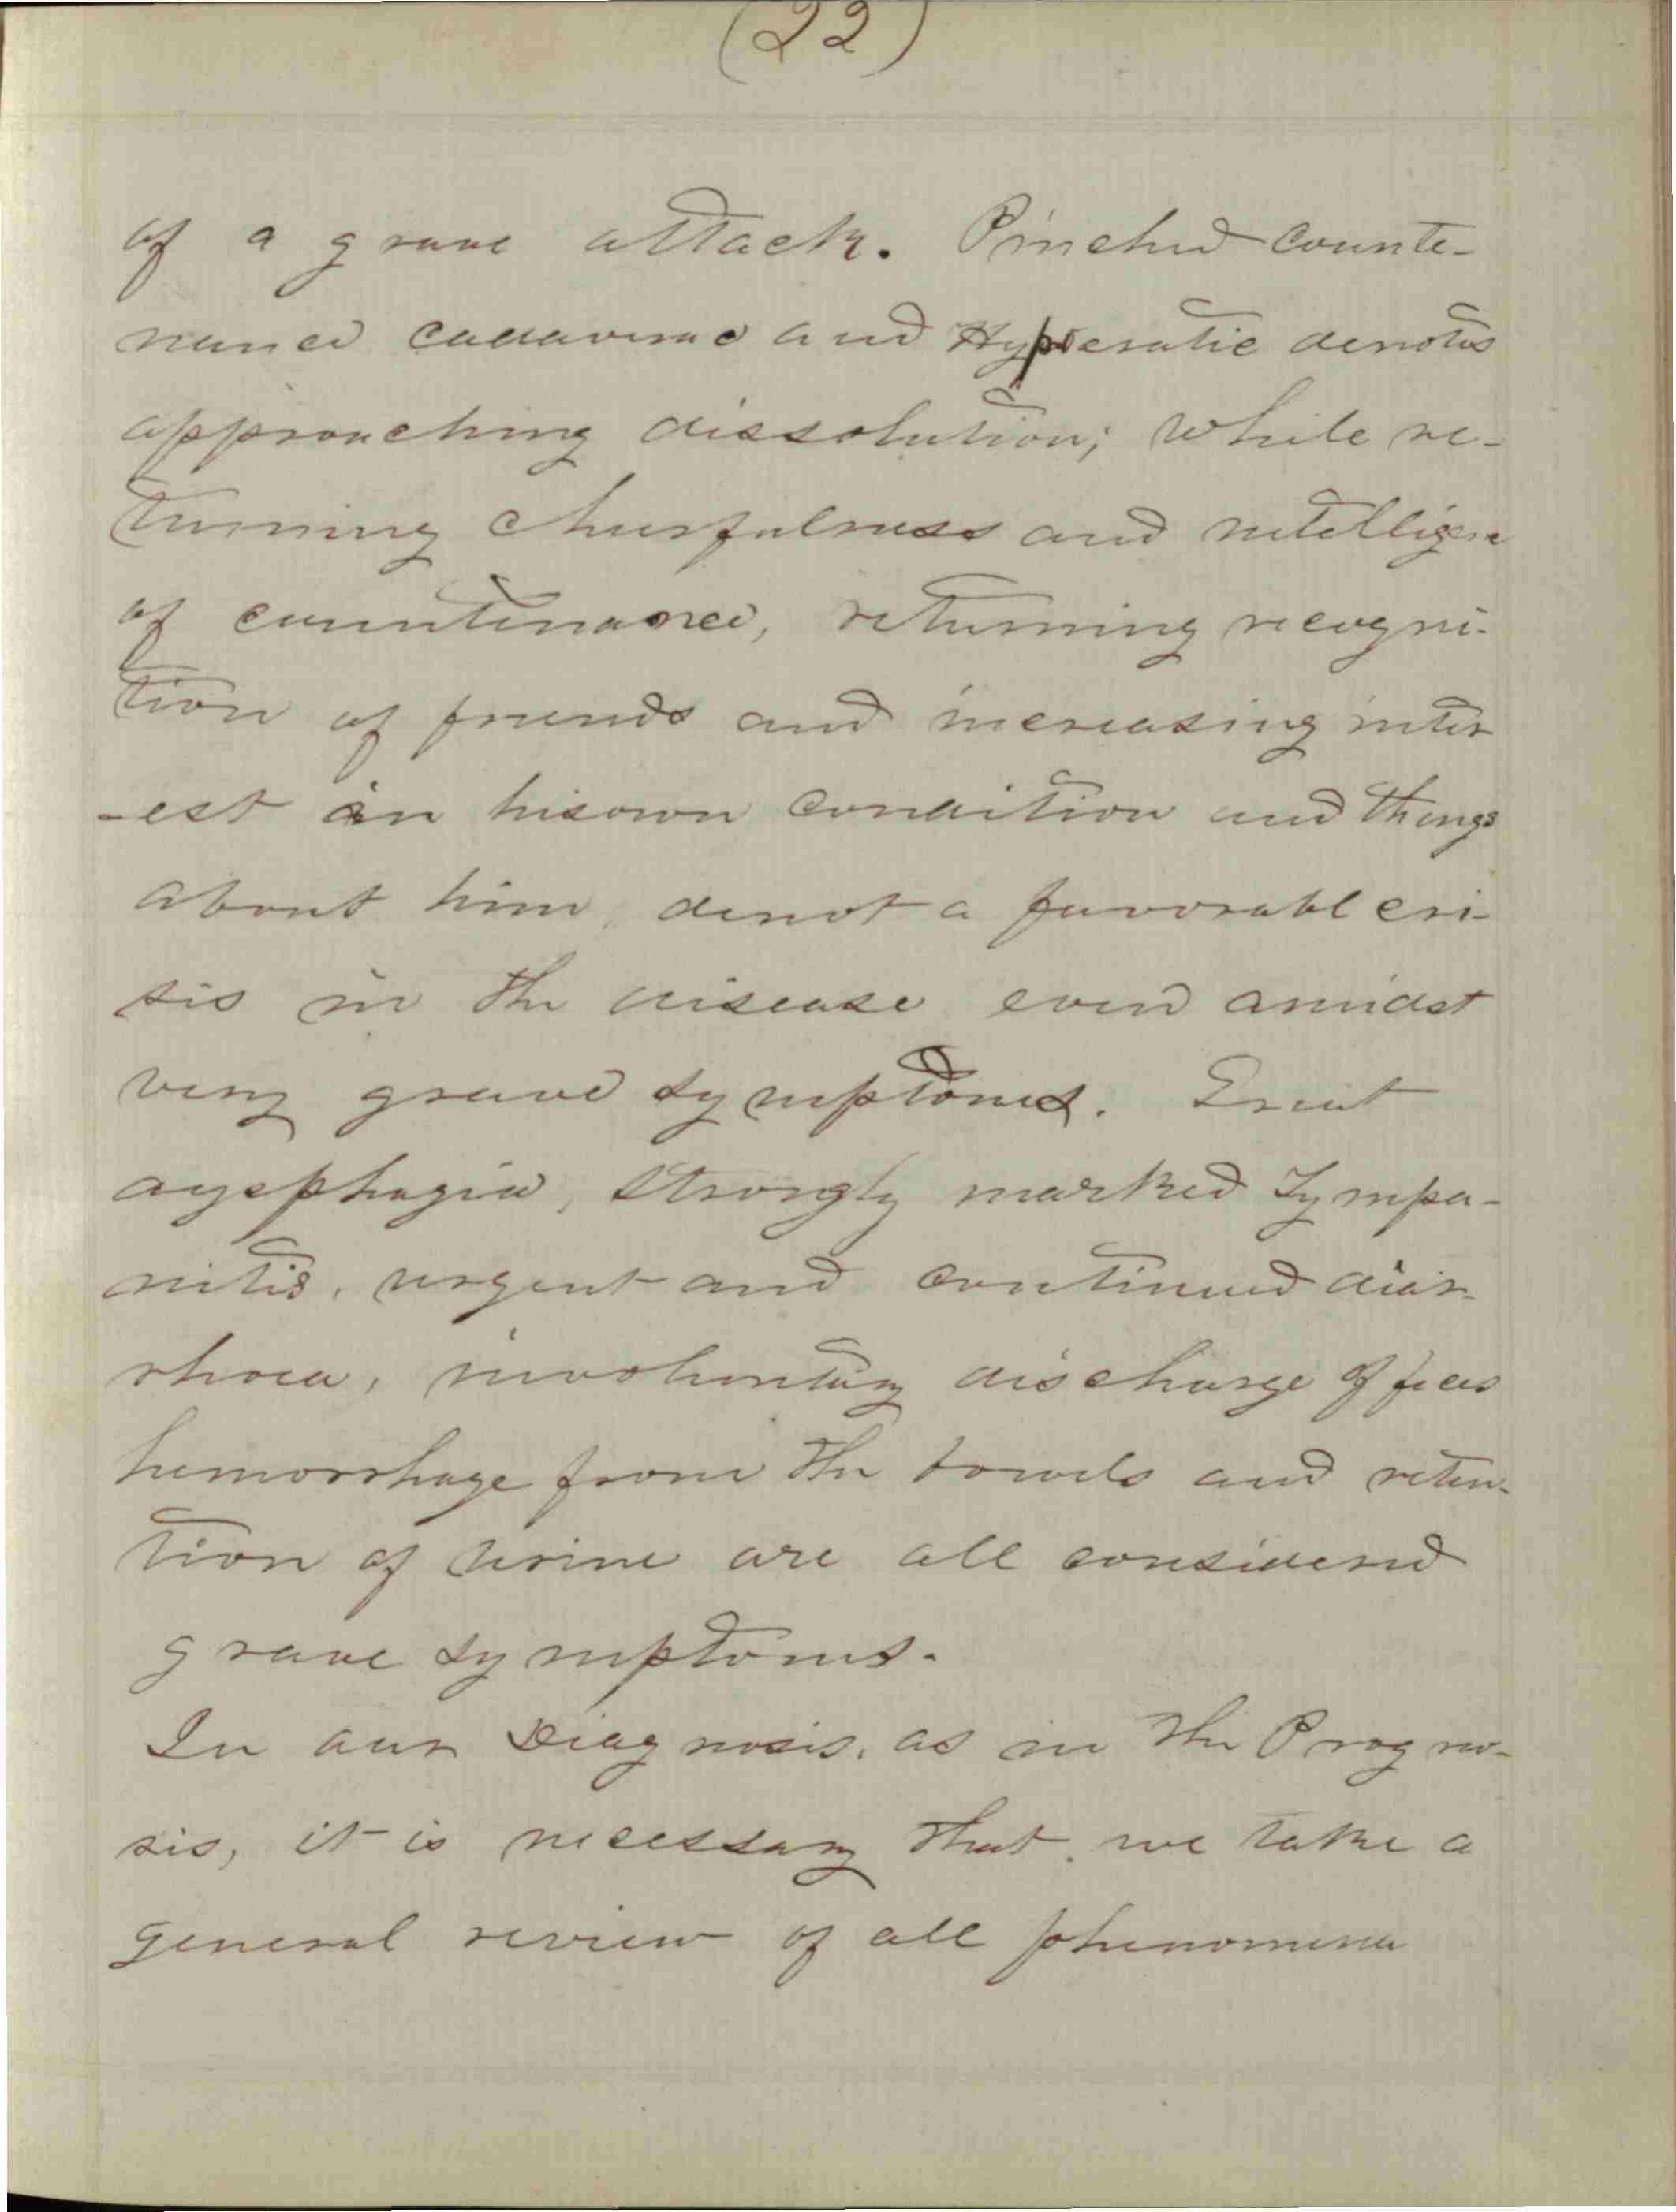 (22)
of a grave attack. Pinched counte-
nance cadaverac and Hypocratic denotes
approaching dissolution; while re-
turning cheerfulness and intelligence
of countenance, returning recogni-
tion of friends and increasing inter
-est in his own condition and things
about him, denot a favorabl cri-
sis in the disease even amidst
very grave symptoms. Great
dysphagia, strongly marked Tympa-
nitis, urgent and continued diar-
rhoea, involuntary discharge of feces
hemorrhage from the bowels and reten-
tion of urine are all considered
grave symptoms.
In our Diagnosis, as in the Progno-
sis, it is necessary that we take a
general review of all phenomena